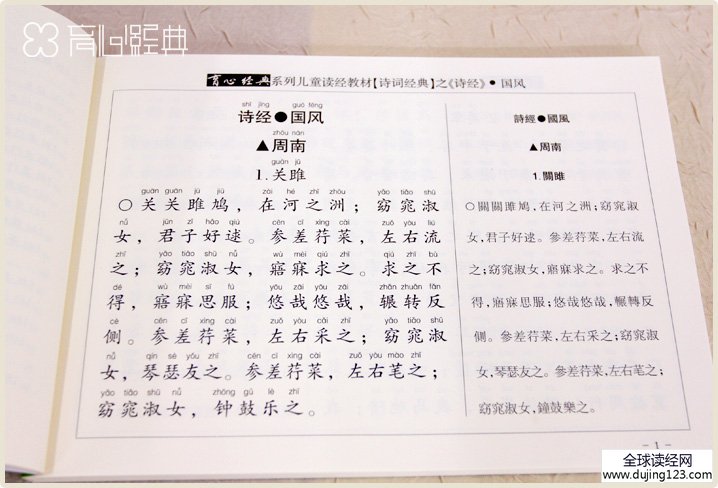 育心经典
育心经典系列儿童读经教材【诗词经典】之《诗经》•国风
shī jīng guó fēng
诗经●国风
zhōu nán
▲周南
guān jū
1.关雎
guān guān jū jiū zài hé zhī zhōu yǎo tiǎo shū
○关关雎鸠，在河之洲；窈窕淑
nǚ jūn zǐ hǎo qiú cēn cī xìng cài zuǒ yòu liú
女，君子好逑。参差荇菜，左右流
zhī yǎo tiǎo shū nǚ wù mèi qiú zhī qiú zhī bù
之；窈窕淑女，寤寐求之。求之不
dé wù mèi sī fú yōu zāi yōu zāi zhǎn zhuǎn fǎn
得，寤寐思服；悠哉悠哉，辗转反
cè cēn cī xìng cài zuǒ yòu cǎi zhī yǎo tiǎo shū
侧。参差荇菜，左右采之；窈窕淑
nǚ qín sè yǒu zhī cēn cī xìng cài zuǒ yòu mào zhī
女，琴瑟友之。参差荇菜，左右芼之；
yǎo tiǎo shū nǚ zhōng gǔ lè zhī
窈窕淑女，钟鼓乐之。
詩經●國風
▲周南
1.關雎
○關關雎鳩，在河之洲；窈窕淑
女，君子好逑。參差荇菜，左右流
之；窈窕淑女，寤寐求之。求之不
得，寤寐思服；悠哉悠哉，輾轉反
側。參差荇菜，左右采之；窈窕淑
女，琴瑟友之。參差荇菜，左右芼之；
窈窕淑女，鐘鼓樂之。
- 1 -
全球读经网
www.dujing123.com